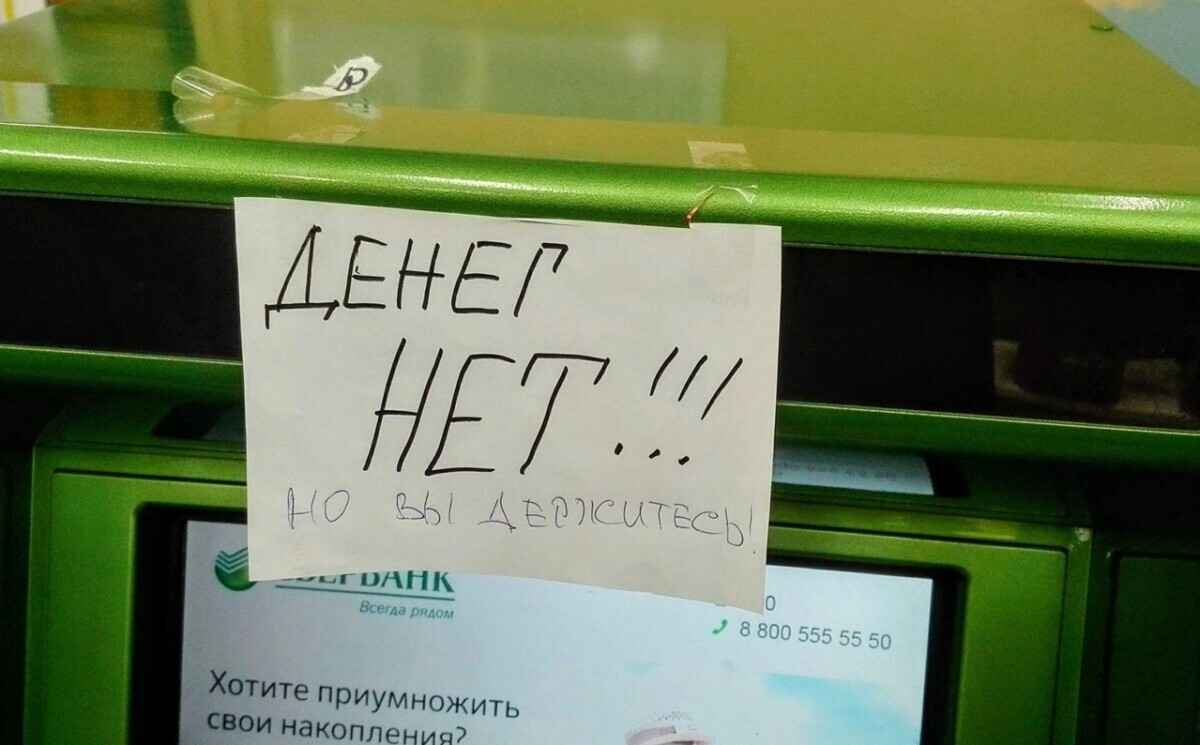 ДЕНЕГ
НЕТ!!!
НО ВЫ ДЕРЖИТЕСЬ!
СБЕРБАНК
Всегда рядом
8 800 555 55 50
Хотите приумножить
свои накопления?